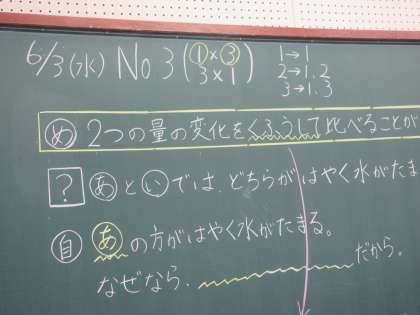 6/3(水) No 3 (1×3 3×1)
1→1
2→1.2
3→1.3
め 2つの量の変化をくふうして比べることが
? あといでは、どちらがはやく水がたま
自 あの方がはやく水がたまる。
なぜなら、 だから。